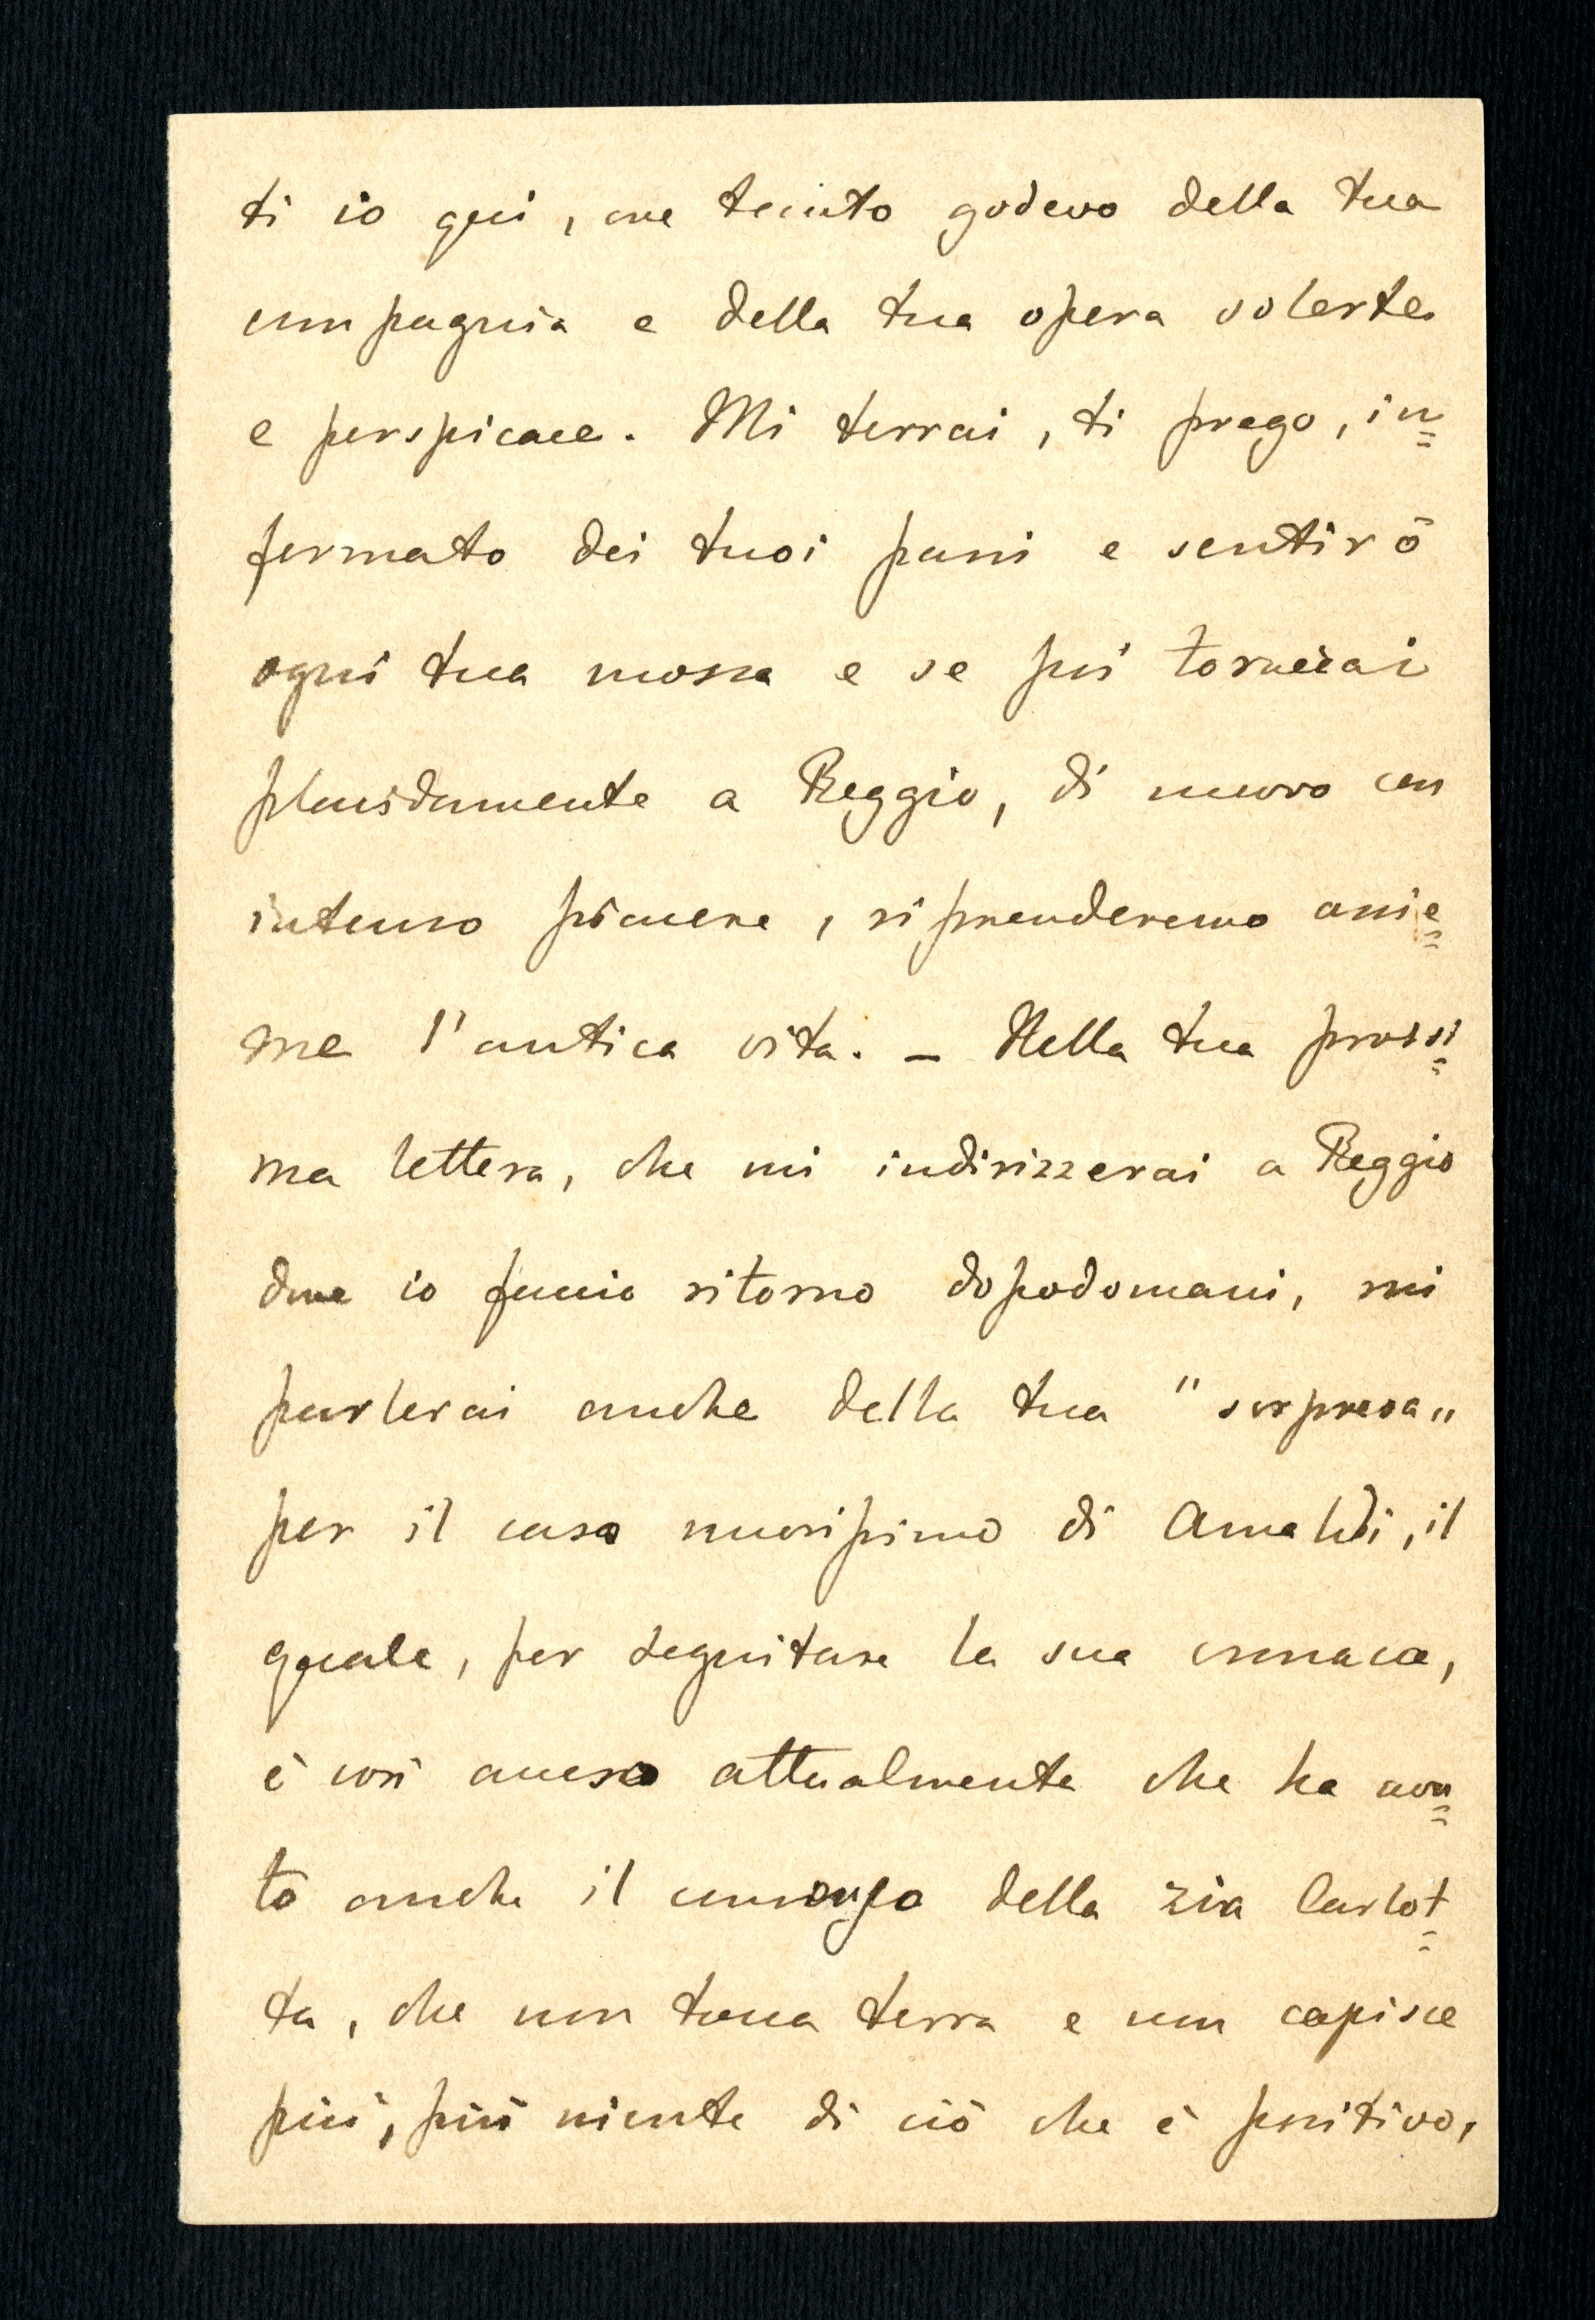 ti io qui, ove tanto godevo della tua
compagnia e della tua opera solerte
e perspicace. Mi terrai, ti prego, in=
formato dei tuoi passi e sentirò
ogni tua mossa e se poi tornerai
placidamente a Reggio, di nuovo con
intenso piacere, riprenderemo assie=
me l'antica vita. – Nella tua prossi=
ma lettera, che mi indirizzerai a Reggio
dove io faccio ritorno dopodomani, mi
parlerai anche della tua "sorpresa"
per il caso nuovissimo di Amaldi, il
quale, per seguitare la sua cronaca,
è così acceso attualmente che ha avu=
to anche il consenso della zia Carlot=
ta, che non tocca terra e non capisce
più, più niente di ciò che è positivo,